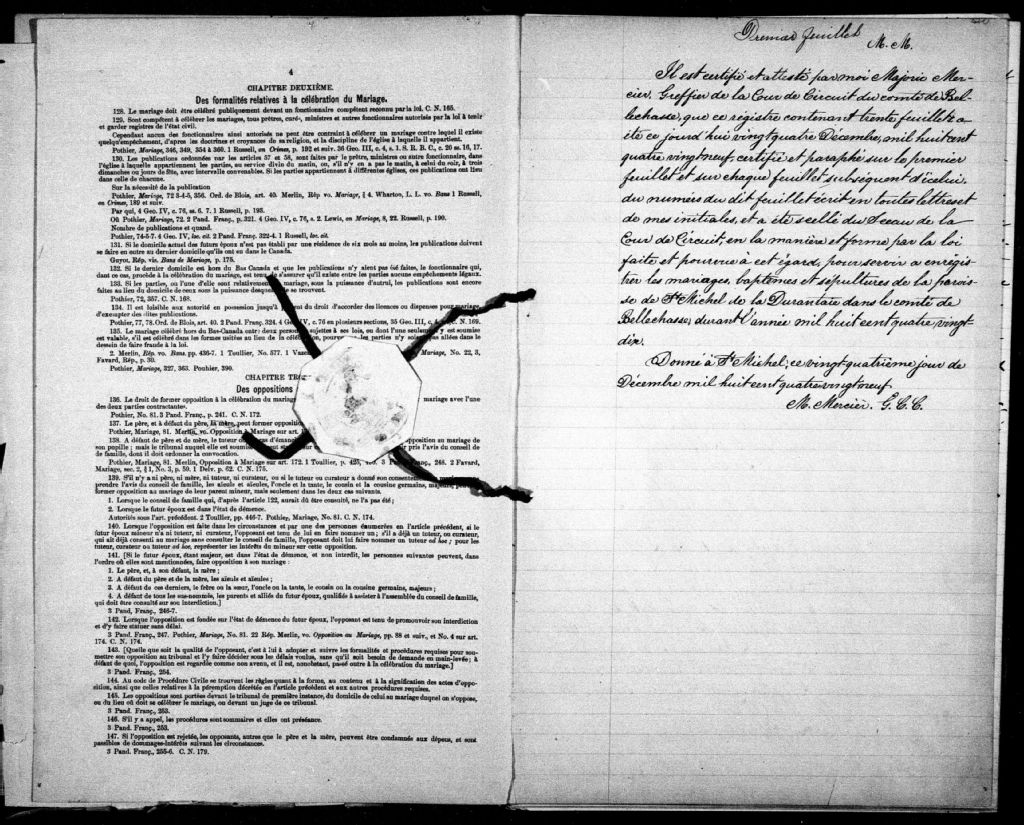 4
CHAPITRE DEUXIÈME.
Des formalités relatives à la célébration du Mariage.
128. Le mariage doit être célébré publiquement devant un fonctionnaire compétent reconnu par la loi. C. N. 165.
129. Sont compétents à célébrer les mariages, tous prêtres, curés, ministres et autres fonctionnaires autorisés par la loi à tenir
et garder registres de l'état civil.
Cependant aucun des fonctionnaires ainsi autorisés ne peut être contraint à célébrer un mariage contre lequel il existe
quelqu'empêchement, d'après les doctrines et croyances de sa religion, et la discipline de l'église à laquelle il appartient.
Pothier, Mariage, 346, 349, 354 à 360. 1 Russell, on Crimes, p. 192 et suiv. 36 Geo. III, c. 4, s. 1. S. R. B. C., c. 20 ss. 16, 17.
130. Les publications ordonnées par les articles 57 et 58, sont faites par le prêtre, ministre ou autre fonctionnaire, dans
l'église à laquelle appartiennent les parties, au service divin du matin, ou, s'il n'y en a pas le matin, à celui du soir, à trois
dimanches ou jours de fête, avec intervalle convenables. Si les parties appartiennent à différentes églises, ces publications ont lieu
dans celle de chacune.
Sur la nécessité de la publication
Pothier, Mariage, 72 3-4-5, 356. Ord. de Blois, art. 40. Merlin, Rép vo. Mariage, § 4. Wharton, L. L. vo. Bans 1 Russell,
on Crimes, 189 et suiv.
Par qui, 4 Geo. IV, c. 76, ss. 6. 7. 1 Russell, p. 193.
Où Pothier, Mariage, 72. 2 Pand. Franç., p. 321. 4 Geo. IV, c. 76, s. 2. Lewis, on Mariage, 8, 22. Russell, p. 190.
Nombre de publications et quand.
Pothier, 74-5-7. 4 Geo. IV, loc. cit. 2 Pand. Franç. 322-4. 1 Russell, loc. cit.
131. Si le domicile actuel des futurs époux n'est pas établi par une résidence de six mois au moins, les publications doivent
se faire en outre au dernier domicile qu'ils ont eu dans le Canada.
Guyot, Rép. vis. Bans de Mariage, p. 175.
132. Si le dernier domicile est hors du Bas Canada et que les publications n'y aient pas été faites, le fonctionnaire qui,
dans ce cas, procède à la célébration du mariage, est tenu de s'assurer qu'il existe entre les parties aucuns empêchements légaux.
133. Si les parties, ou l'une d'elle sont relativement au mariage, sous la puissance d'autrui, les publications sont encore
faites au lieu du domicile de ceux sous la puissance desquels elles se trouvent.
Pothier, 72, 357. C. N. 168.
134. Il est loisible aux autorité en possession jusqu'à présent du droit d'accorder des licences ou dispenses pour mariage,
d'exempter des dites publications.
Pothier, 77, 78. Ord. de Blois, art. 40. 2 Pand. Franç. 324. 4 Geo IV, c. 76 en plusieurs sections, 35 Geo. III, c. 4, C. N. 169.
135. Le mariage célébré hors du Bas-Canada entre deux personnes sujettes à ses lois, ou dont l'une seulement y est soumise
est valable, s'il est célébré dans les formes usitées au lieu de la célébration, pourvu que les parties n'y soient pas allées dans le
dessein de faire fraude à la loi.
2. Merlin, Rép. vo. Bans. pp. 436-7. 1 Toullier, No. 577. 1 Mariage, No. 22, 3,
Favard, Rép., p. 30.
Pothier, Mariage, 327, 363. Pouhier, 390.
CHAPITRE
Des oppositions
136. Le droit de former opposition à la célébration du mariage mariage avec l'une
des deux parties contractantes.
Pothier, No. 81. 3 Pand. Franç., p. 241. C. N. 172.
137. Le père, et à défaut du père, la mère, peut former opposition
Pothier, Mariage, 81. Merlin, vo. Opposition à Mariage sur art.
138. A défaut de père et de mère, le tuteur opposition au mariage de
son pupille ; mais le tribunal auquel elle est soumise pris l'avis du conseil de
famille, dont il doit ordonner la convocation.
Pothier, Mariage, 81. Merlin, Opposition à Mariage sur art. 172. 1 Toullier, p. 425, 3 Pand. Franç., 248. 2 Favard,
Mariage, sec. 2, § 1, No. 3, p. 59. 1 Delv. p. 62. C. N. 175.
139. S'il n'y a ni père, ni mère, ni tuteur, ni curateur, ou si le tuteur ou curateur a donné son consentement
prendre l'avis du conseil de famille, les aïeuls et aïeules, l'oncle et la tante, le cousin et la cousine germains, majeurs,
former opposition au mariage de leur parent mineur, mais seulement dans les deux cas suivants.
1. Lorsque le conseil de famille qui, d'après l'article 122, aurait dû être consulté, ne l'a pas été ;
2. Lorsque le futur époux est dans l'état de démence.
Autorités sous l'art. précédent. 2 Toullier, pp. 446-7. Pothier, Mariage, No. 81. C. N. 174.
140. Lorsque l'opposition est faite dans les circonstances et par une des personnes énumérées en l'article précédent, si le
futur époux mineur n'a ni tuteur, ni curateur, l'opposant est tenu de lui en faire nommer un ; s'il a déjà un tuteur, ou curateur,
qui ait déjà consenti au mariage sans consulter le conseil de famille, l'opposant doit lui faire nommer un tuteur ad hoc ; pour les
tuteur, curateur ou tuteur ad hoc, représenter les intérêts du mineur sur cette opposition.
141. [Si le futur époux, étant majeur, est dans l'état de démence, et non interdit, les personnes suivantes peuvent, dans
l'ordre où elles sont mentionnées, faire opposition à son mariage :
1. Le père, et, à son défaut, la mère ;
2. A défaut du père et de la mère, les aïeuls et aïeules ;
3. A défaut de ces derniers, le frère ou la sœur, l'oncle ou la tante, le cousin ou la cousine germains, majeurs ;
4. A défaut de tous les sus-nommés, les parents et alliés du futur époux, qualifiés à assister à l'assemblée du conseil de famille,
qui doit être consulté sur son interdiction.]
3 Pand. Franç., 246-7.
142. Lorsque l'opposition est fondée sur l'état de démence du futur époux, l'opposant est tenu de promouvoir son interdiction
et d'y faire statuer sans délai.
3 Pand. Franç., 247. Pothier, Mariage, No. 81. 22 Rép. Merlin, vo. Opposition au Mariage, pp. 88 et suiv., et No. 4 sur art.
174. C. N. 174.
143. [Quelle que soit la qualité de l'opposant, c'est à lui à adopter et suivre les formalités et procédures requises pour sou-
mettre son opposition au tribunal et l'y faire décider sous les délais voulus, sans qu'il soit besoin de demande en main-levée ; à
défaut de quoi, l'opposition est regardée comme non avenu, et il est, nonobstant, passé outre à la célébration du mariage.]
3 Pand. Franç., 254.
144. Au code de Procédure Civile se trouvent les règles quant à la forme, au contenu et à la signification des actes d'oppo-
sition, ainsi que celles relatives à la péremption décrétée en l'article précédent et aux autres procédures requises.
145. Les oppositions sont portées devant le tribunal de première instance, du domicile de celui au mariage duquel on s'oppose,
ou du lieu où doit se célébrer le mariage, ou devant un juge de ce tribunal.
3 Pand. Franç., 253.
146. S'il y a appel, les procédures sont sommaires et elles ont préséance.
3 Pand. Franç., 253.
147. Si l'opposition est rejetée, les opposants, autres que le père et la mère, peuvent être condamnés aux dépens, et sont
passibles de dommages-intérêts suivant les circonstances.
3 Pand. Franç., 255-6. C. N. 179.
Premier feuillet
M. M.
Il est certifié et attesté par moi Majoric Mer-
cier, Greffier de la Cour de Circuit du comté de Bel-
lechasse, que ce régistre contenant trente feuillets a
été ce jourd'hui vingtquatre Décembre, mil huit cent
quatre vingt neuf, certifié et paraphé sur le premier
feuillet et sur chaque feuillet subséquent d'icelui,
du numéro du dit feuillet écrit en toutes lettres et
de mes initiales, et a été scellé du Sceau de la
Cour de Circuit, en la manière et forme par la loi
faite et pourvue à cet égard, pour servir a enrégis-
trer les mariages, baptêmes et sépultures de la parois-
se de St Michel de la Durantaie dans le comté de
Bellechasse, durant l'année mil huit cent quatre vingt-
dix.
Donné à St Michel, ce vingt quatrième jour de
Décembre mil huit cent quatre vingt neuf
M. Mercier. G. C. C.